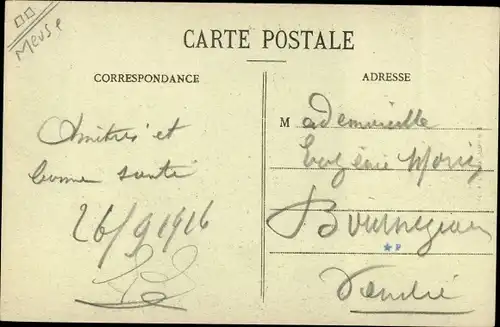 Meuse
CARTE POSTALE
CORRESPONDANCE
ADRESSE
Amitiés et
bonne santé
26/9 1916
Mademoiselle
Eugénie
Bournezeau
Vendée